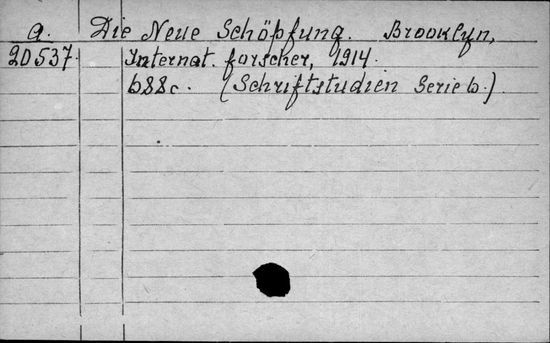 a. Die Neue Schöpfung. Brooklyn,
20537. Internat. forscher, 1914.
688c. (Schriftstudien Serie 6.)